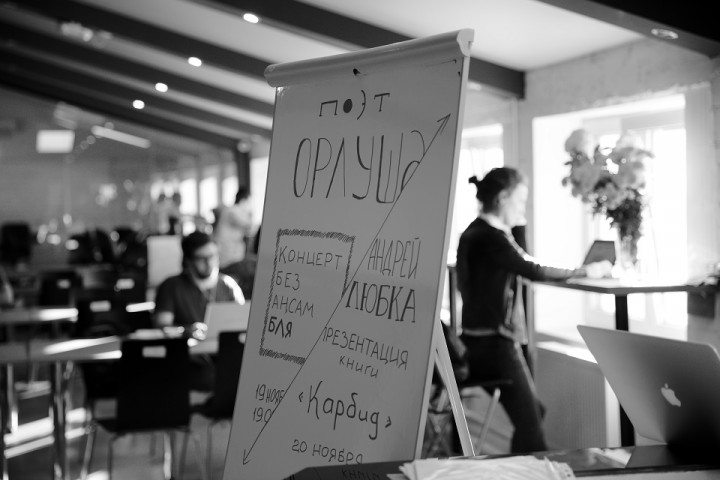 ПОЭТ
ОРЛУША
КОНЦЕРТ
БЕЗ
АНСАМ
БЛЯ
19 НОЯБ
АНДРЕЙ
ЛЮБКА
ПРЕЗЕНТАЦИЯ
КНИГИ
«Карбид»
20 НОЯБРЯ